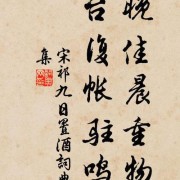 晚佳晨重物
台復帳駐鳴
宋祁九日置酒詞典
集